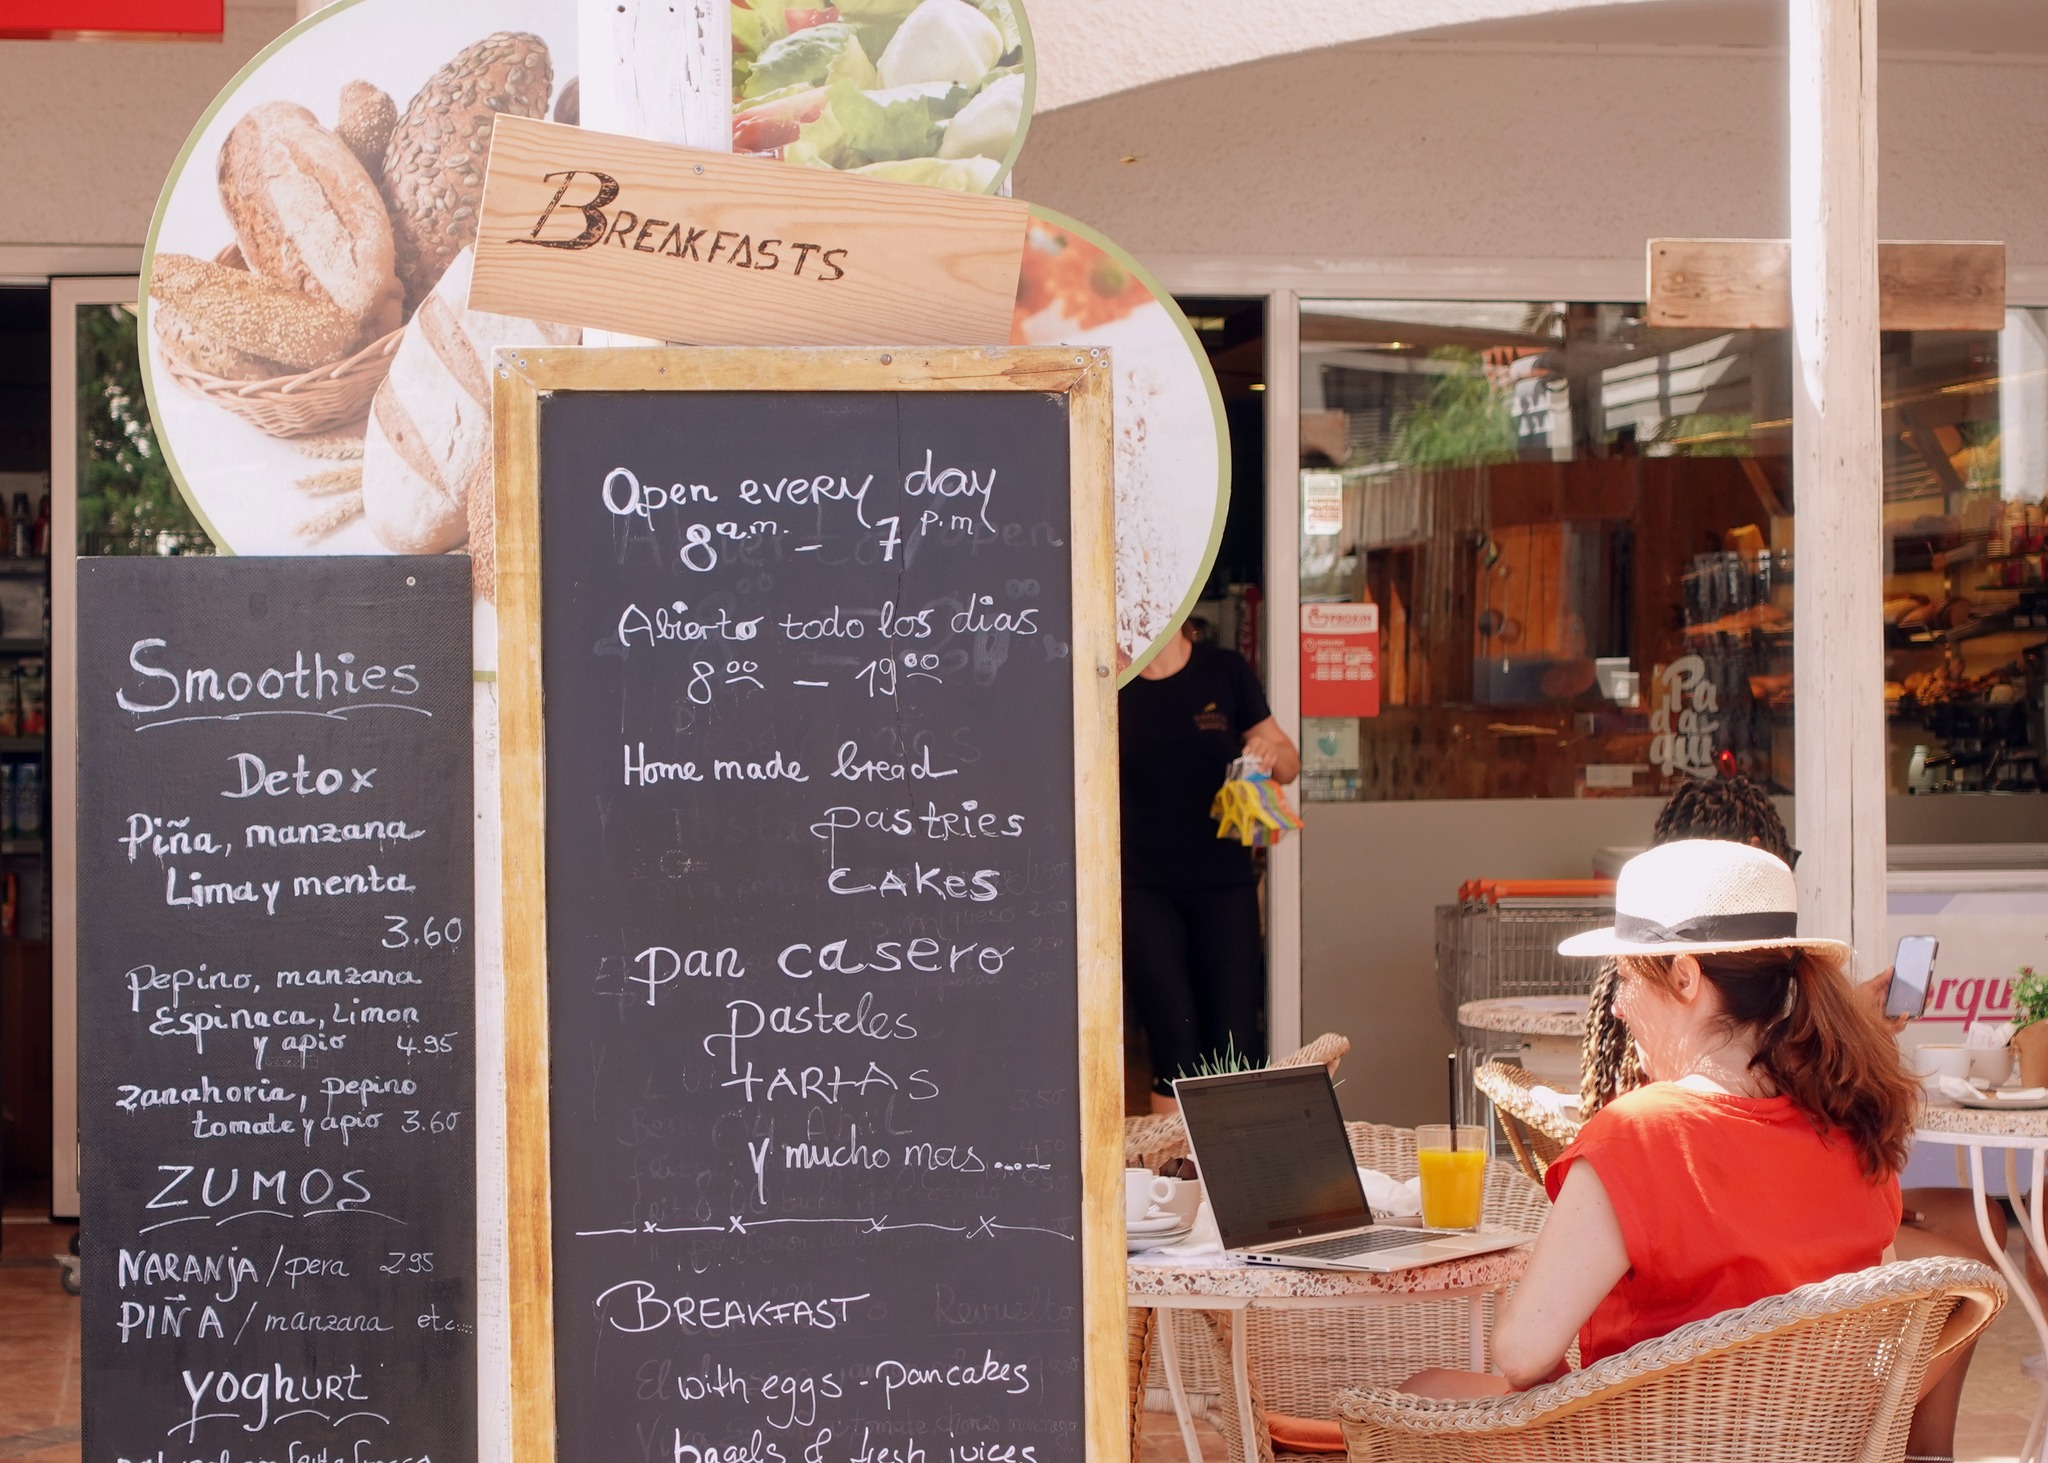 BREAKFASTS
Open every day
8 a.m. - 7 p.m
Abierto todo los dias
8⁰⁰ - 19⁰⁰
Home made bread
pastries
CAKES
pan casero
pasteles
tARtAS
y mucho mas.....
BREAKFAST
with eggs - pancakes
bagels & fresh juices
Smoothies
Detox
Piña, manzana
Lima y menta
3.60
pepino, manzana
Espinaca, Limon
y apio 4.95
zanahoria, pepino
tomate y apio 3.60
ZUMOS
NARANJA / pera 2.95
PIÑA / manzana etc....
yoghurt
Pa
d'a
qui
PROXIM